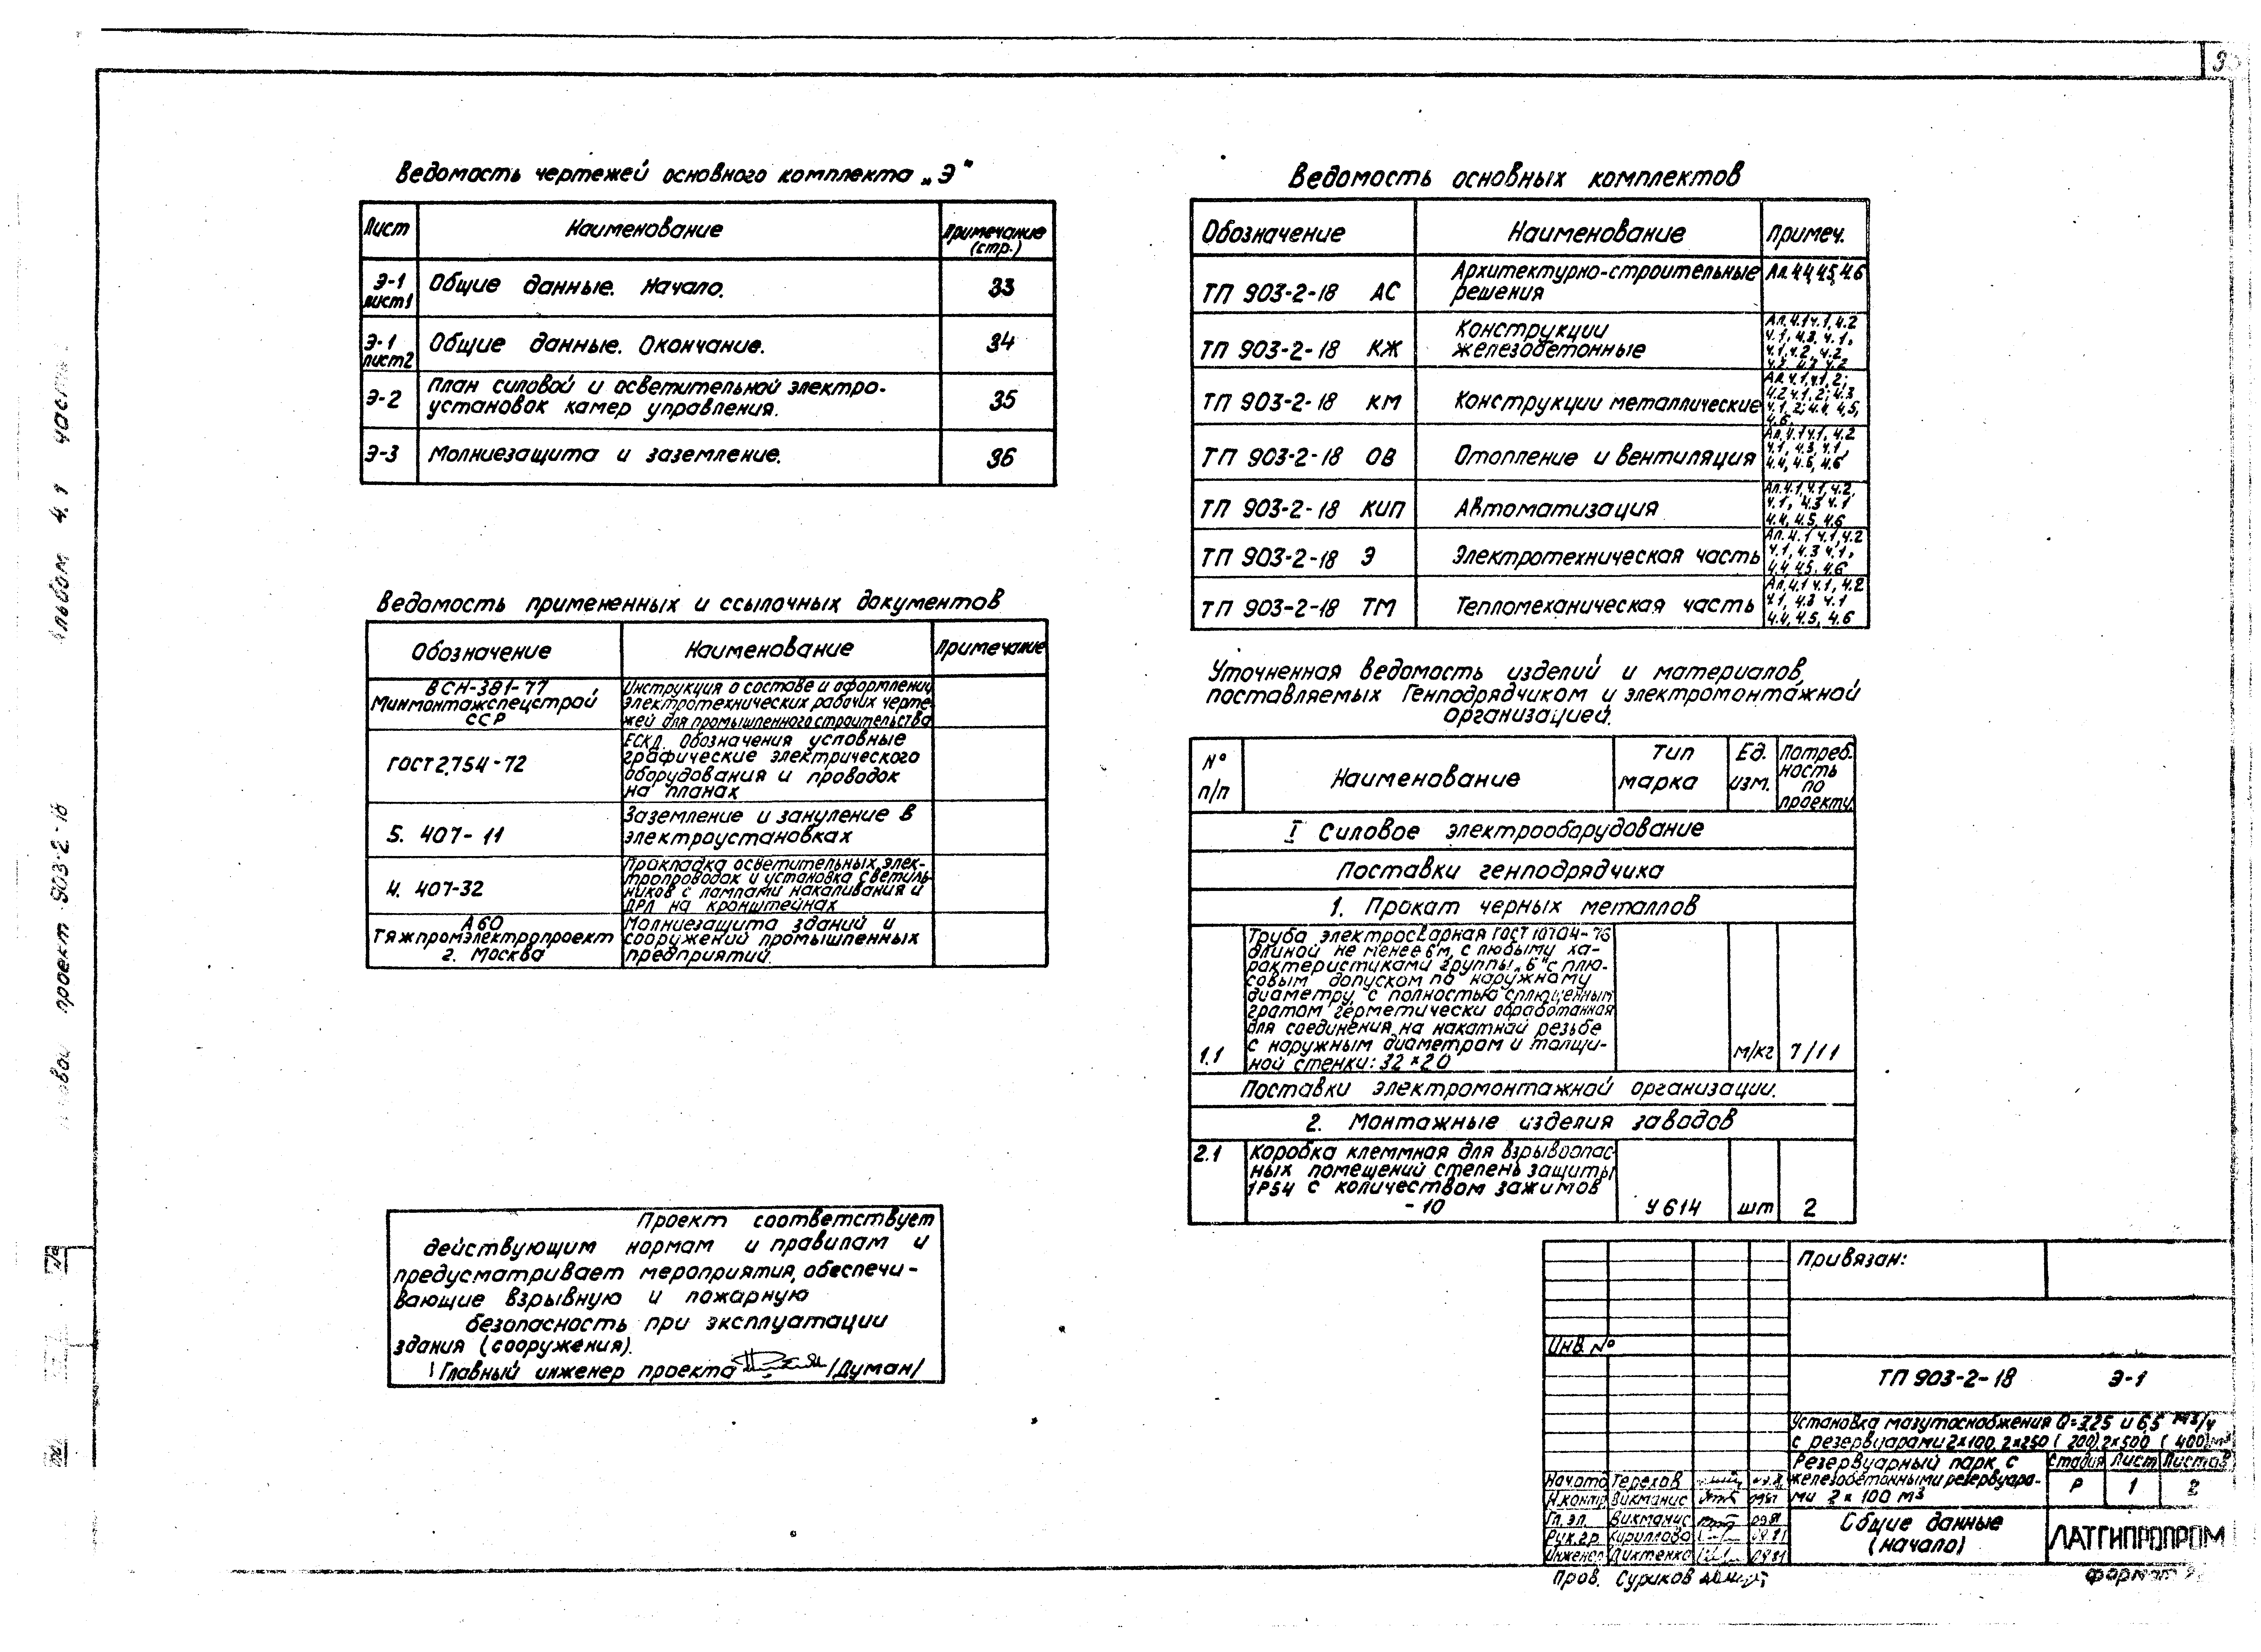 Альбом 4.1
проект 903-2-18
Ведомость чертежей основного комплекта „Э"
Лист Наименование Примечание (стр.)
Э-1 лист1 Общие данные. Начало. 33
Э-1 лист2 Общие данные. Окончание. 34
Э-2 План силовой и осветительной электро-
установок камер управления. 35
Э-3 Молниезащита и заземление. 36
Ведомость примененных и ссылочных документов
Обозначение Наименование Примечание
ВСН-381-77
Минмонтажспецстрой
ССР
Инструкция о составе и оформлении
электротехнических рабочих черте-
жей для промышленного строительства
ГОСТ 2.754-72
ЕСКД. Обозначения условные
графические электрического
оборудования и проводок
на планах
5.407-11
Заземление и зануление в
электроустановках
4.407-32
Прокладка осветительных элек-
тропроводок и установка светиль-
ников с лампами накаливания и
ДРЛ на кронштейнах
А60
Тяжпромэлектропроект
г. Москва
Молниезащита зданий и
сооружений промышленных
предприятий.
Проект соответствует
действующим нормам и правилам и
предусматривает мероприятия, обеспечи-
вающие взрывную и пожарную
безопасность при эксплуатации
здания (сооружения).
Главный инженер проекта /Думан/
Ведомость основных комплектов
Обозначение Наименование Примеч.
ТП 903-2-18 АС Архитектурно-строительные
решения
Ал. 4.4, 4.5, 4.6
ТП 903-2-18 КЖ Конструкции
железобетонные
Ал. 4.1 ч.1, 4.2
ч.1, 4.3 ч.1,
ТП 903-2-18 КМ Конструкции металлические
Ал. 4.1 ч.1, 2;
4.2 ч.1, 2; 4.3
ч.1, 2; 4.4, 4.5,
4.6.
ТП 903-2-18 ОВ Отопление и вентиляция
Ал. 4.1 ч.1, 4.2
ч.1, 4.3 ч.1,
4.4, 4.5, 4.6
ТП 903-2-18 КИП Автоматизация
Ал. 4.1, ч.1, 4.2,
ч.1, 4.3 ч.1
4.4, 4.5, 4.6
ТП 903-2-18 Э Электротехническая часть
Ал. 4.1 ч.1, 4.2
ч.1, 4.3 ч.1,
4.4, 4.5, 4.6
ТП 903-2-18 ТМ Тепломеханическая часть
Ал. 4.1 ч.1, 4.2
ч.1, 4.3 ч.1
4.4, 4.5, 4.6
Уточненная ведомость изделий и материалов,
поставляемых Генподрядчиком и электромонтажной
организацией.
№ п/п Наименование Тип марка Ед. изм. Потреб-
ность
по
проекту
I Силовое электрооборудование
Поставки генподрядчика
1. Прокат черных металлов
Труба электросварная ГОСТ 10704-76
длиной не менее 6м, с любыми ха-
рактеристиками группы „Б" с плю-
совым допуском по наружному
диаметру, с полностью сплющенным
гратом герметически обработанная
для соединения на накатной резьбе
с наружным диаметром и толщи-
ной стенки: 32×2.0
1.1 м/кг 7/11
Поставки электромонтажной организации.
2. Монтажные изделия заводов
2.1 Коробка клеммная для взрывоопас-
ных помещений степень защиты
1Р54 с количеством зажимов
-10 У614 шт 2
Привязан:
Инв. №
ТП 903-2-18 Э-1
Установка мазутоснабжения Q=3,25 и 6,5 м3/ч
с резервуарами 2×100, 2×250 (200), 2×500 (400) м3
Резервуарный парк с
железобетонными резервуара-
ми 2×100 м3
Стадия Лист Листов
Р 1 2
Начотд Терехов
Н.контр Викманис 0981
Гл. эл. Викманис 0981
Рук.гр. Кириллова 0981
Инженер Диктенко 0981
Общие данные
(начало)
ЛАТГИПРОПРОМ
Пров. Суриков
формат